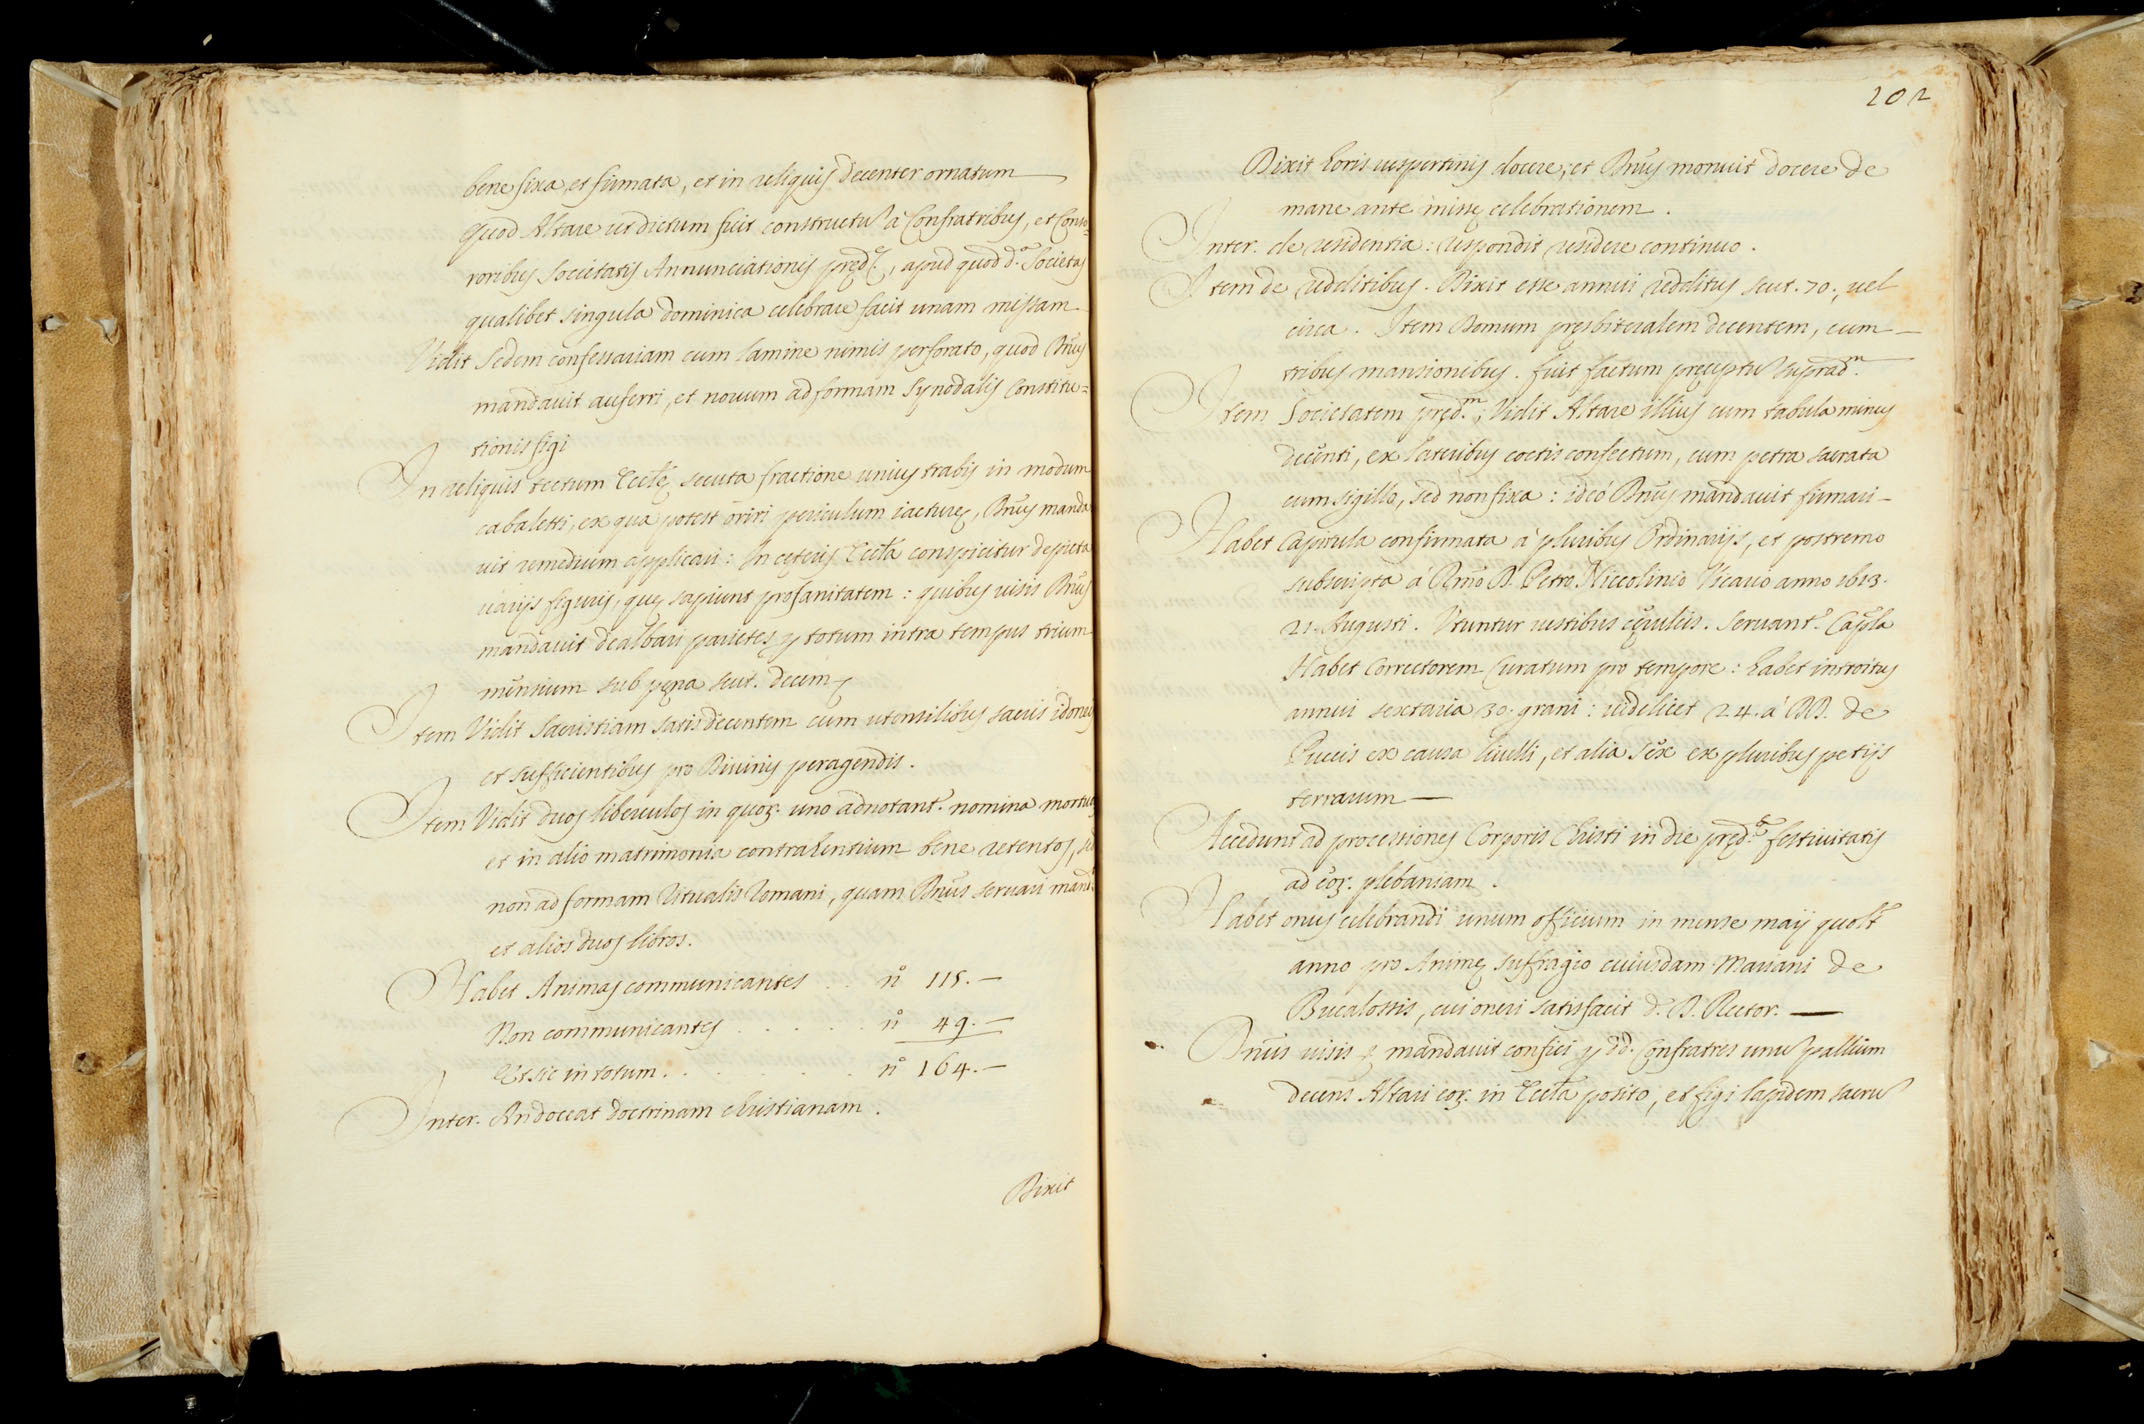 bene fixa, et firmata, et in reliquis decenter ornatum
Quod Altare ut dictum fuit constructũ à Confratribus, et Conso=
roribus societatis Annunciationis pręd.ę, apud quod d.ª Societas
qualibet singula dominica celebrare facit unam missam
Vidit Sedem confessariam cum lamine nimis perforato, quod Dñus
mandavit auferri, et novum ad formam Synodalis Constitu=
tionis figi
In reliquis tectum Eccłę secuta fractione unius trabis in modum
cabaletti, ex qua potest oriri periculum iacturę, Dñus manda
vit remedium applicari: In cęteris Eccła conspicitur depicta
varijs figuris, quę sapiunt profanitatem: quibus visis Dñus
mandavit dealbari parietes p totum intra tempus trium
mensium sub pęna scut. decem
Item Vidit Sacristiam satis decentem cum utensilibus sacris idoneis
et sufficientibus pro Divinis peragendis.
Item Vidit duos liberculos in quoz. uno adnotant.r nomina mortuoz
et in alio matrimonia contrahentium bene retentos, sed
non ad formam Ritualis Romani, quam Dñus servari mand.t
et alios duos libros.
Habet Animas communicantes . . n.º 115.—
Non communicantes . . . . . n.º 49.—
Et sic in totum . . . . . . n.º 164.—
Inter. An doceat doctrinam christianam.
Dixit
202
Dixit horis vespertinis docere; et Dñus monuit docere de
mane ante missę celebrationem.
Inter. de residentia: respondit residere continuo.
Item de redditibus. Dixit esse annui redditus scut. 70., vel
circa. Item Domum pręsbiteralem decentem, cum
tribus mansionibus. fuit factum pręceptũ suprad.m
Item Societatem pręd.m; Vidit Altare illius cum tabula minus
decenti, ex lateribus coctis confectum, cum petra sacrata
cum sigillo, sed non fixa: ideò Dñus mandavit firmari—
Habet Capitula confirmata à pluribus Ordinarijs, et postremo
subscripta à Rmo D. Petro Niccolinio Vicario anno 1613.
21. Augusti. Utuntur vestibus cęruleis. servant.r Capla
Habet Correctorem Curatum pro tempore: habet introitus
annui sextaria 30. grani: videlicet 24. à DD. de
Puccis ex causa livelli, et alia sex ex pluribus petijs
terrarum—
Accedunt ad processiones Corporis Christi in die pręd.ę festivitatis
ad eoz. plebaniam.
Habet onus celebrandi unum officium in mense maij quolt
anno pro Animę suffragio cuiusdam Mariani de
Bucalossis, cui oneri satisfacit d. D. Rector.—
Dñus visis ę mandavit confici p dd. Confratres unũ pallium
decens Altari eoz. in Eccła posito, et figi lapidem sacrũ